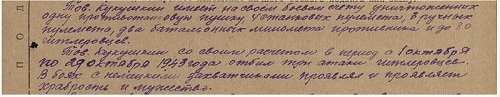 Тов. Кукушкин имеет на своем боевом счету уничтоженных
одну противотанковую пушку, 4 станковых пулемета, 6 ручных
пулемета, два батальонных миномета противника и до 80
гитлеровцев.
Тов. Кукушкин со своим расчетом в период с 1 октября
по 29 октября 1943 года отбил три атаки гитлеровцев.
В боях с немецкими захватчиками проявлял и проявляет
храбрость и мужество.
П О Д